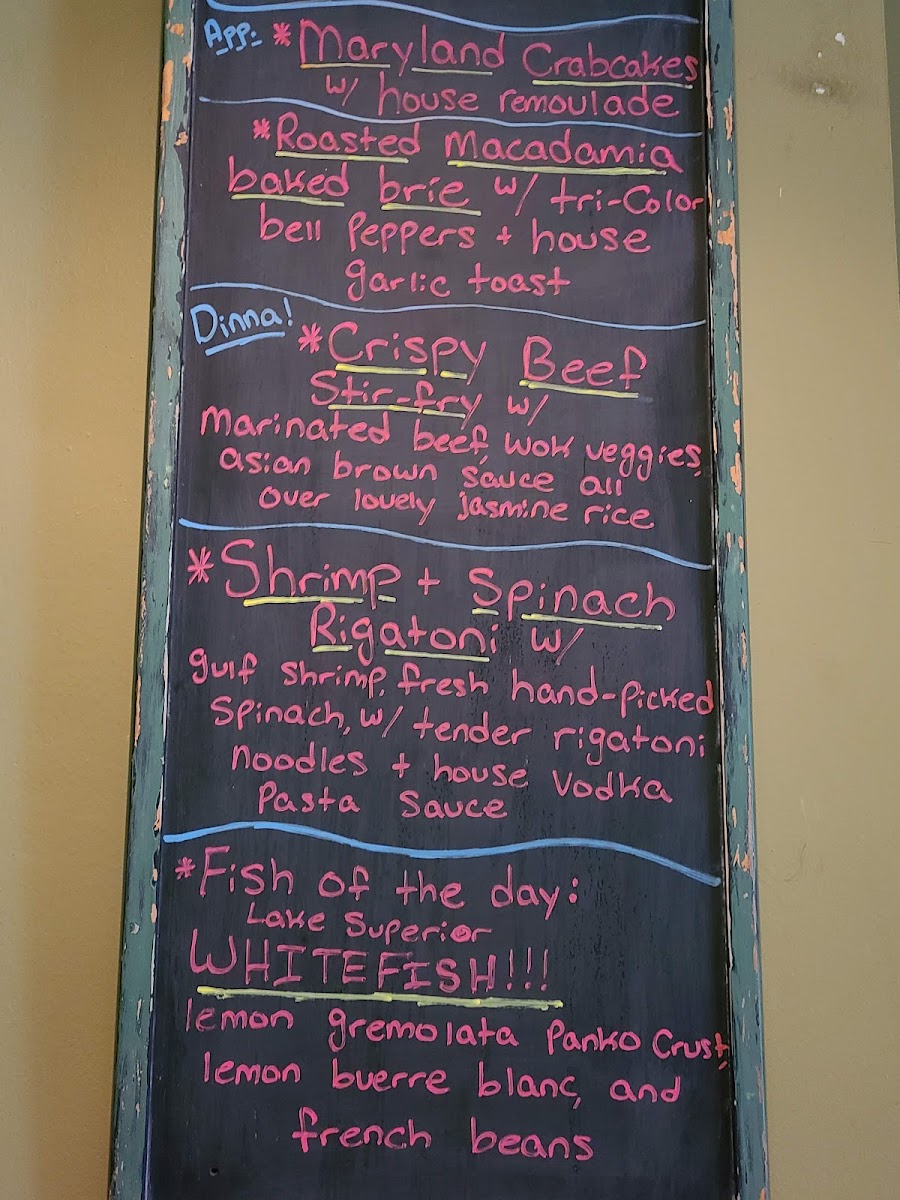 App: * Maryland Crabcakes
w/ house remoulade
*Roasted Macadamia
baked brie w/ tri-Color
bell Peppers + house
garlic toast
Dinna! *Crispy Beef
Stir-fry w/
Marinated beef, wok veggies,
asian brown sauce all
over lovely jasmine rice
*Shrimp + Spinach
Rigatoni w/
gulf shrimp, fresh hand-picked
Spinach, w/ tender rigatoni
noodles + house Vodka
Pasta Sauce
*Fish of the day:
Lake Superior
WHITEFISH!!!
lemon gremolata Panko Crust,
lemon buerre blanc, and
french beans